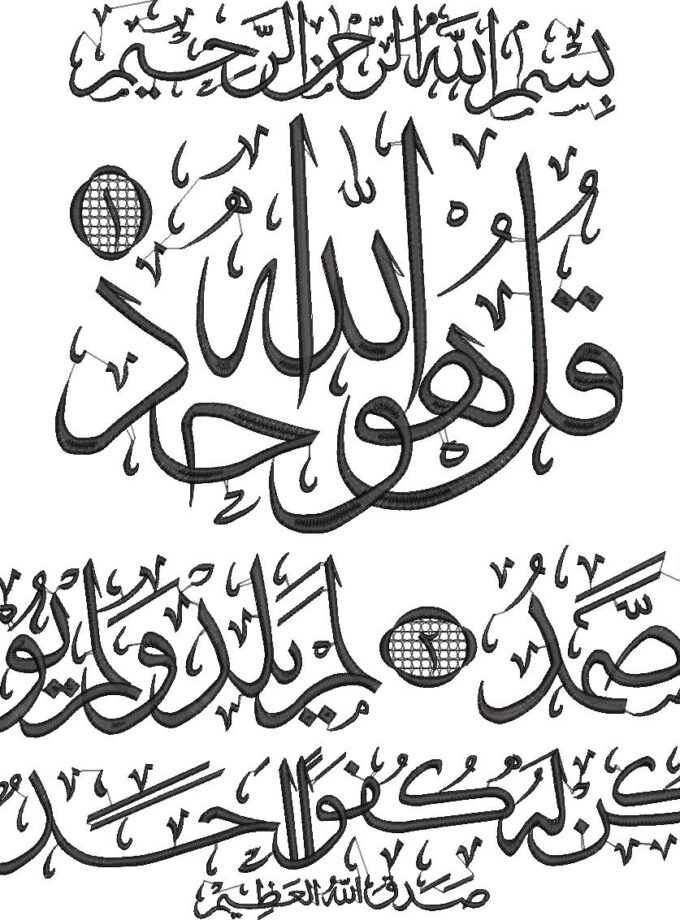 بِسْمِ اللهِ الرَّحْمٰنِ الرَّحِيْمِ
قُلْ هُوَ اللّٰهُ أَحَدٌ ١
صَّمَدُ ٢ لَمْ يَلِدْ وَلَمْ يُو
كُنْ لَهُ كُفُوًا أَحَدٌ
صَدَقَ اللهُ العَظِيْمُ